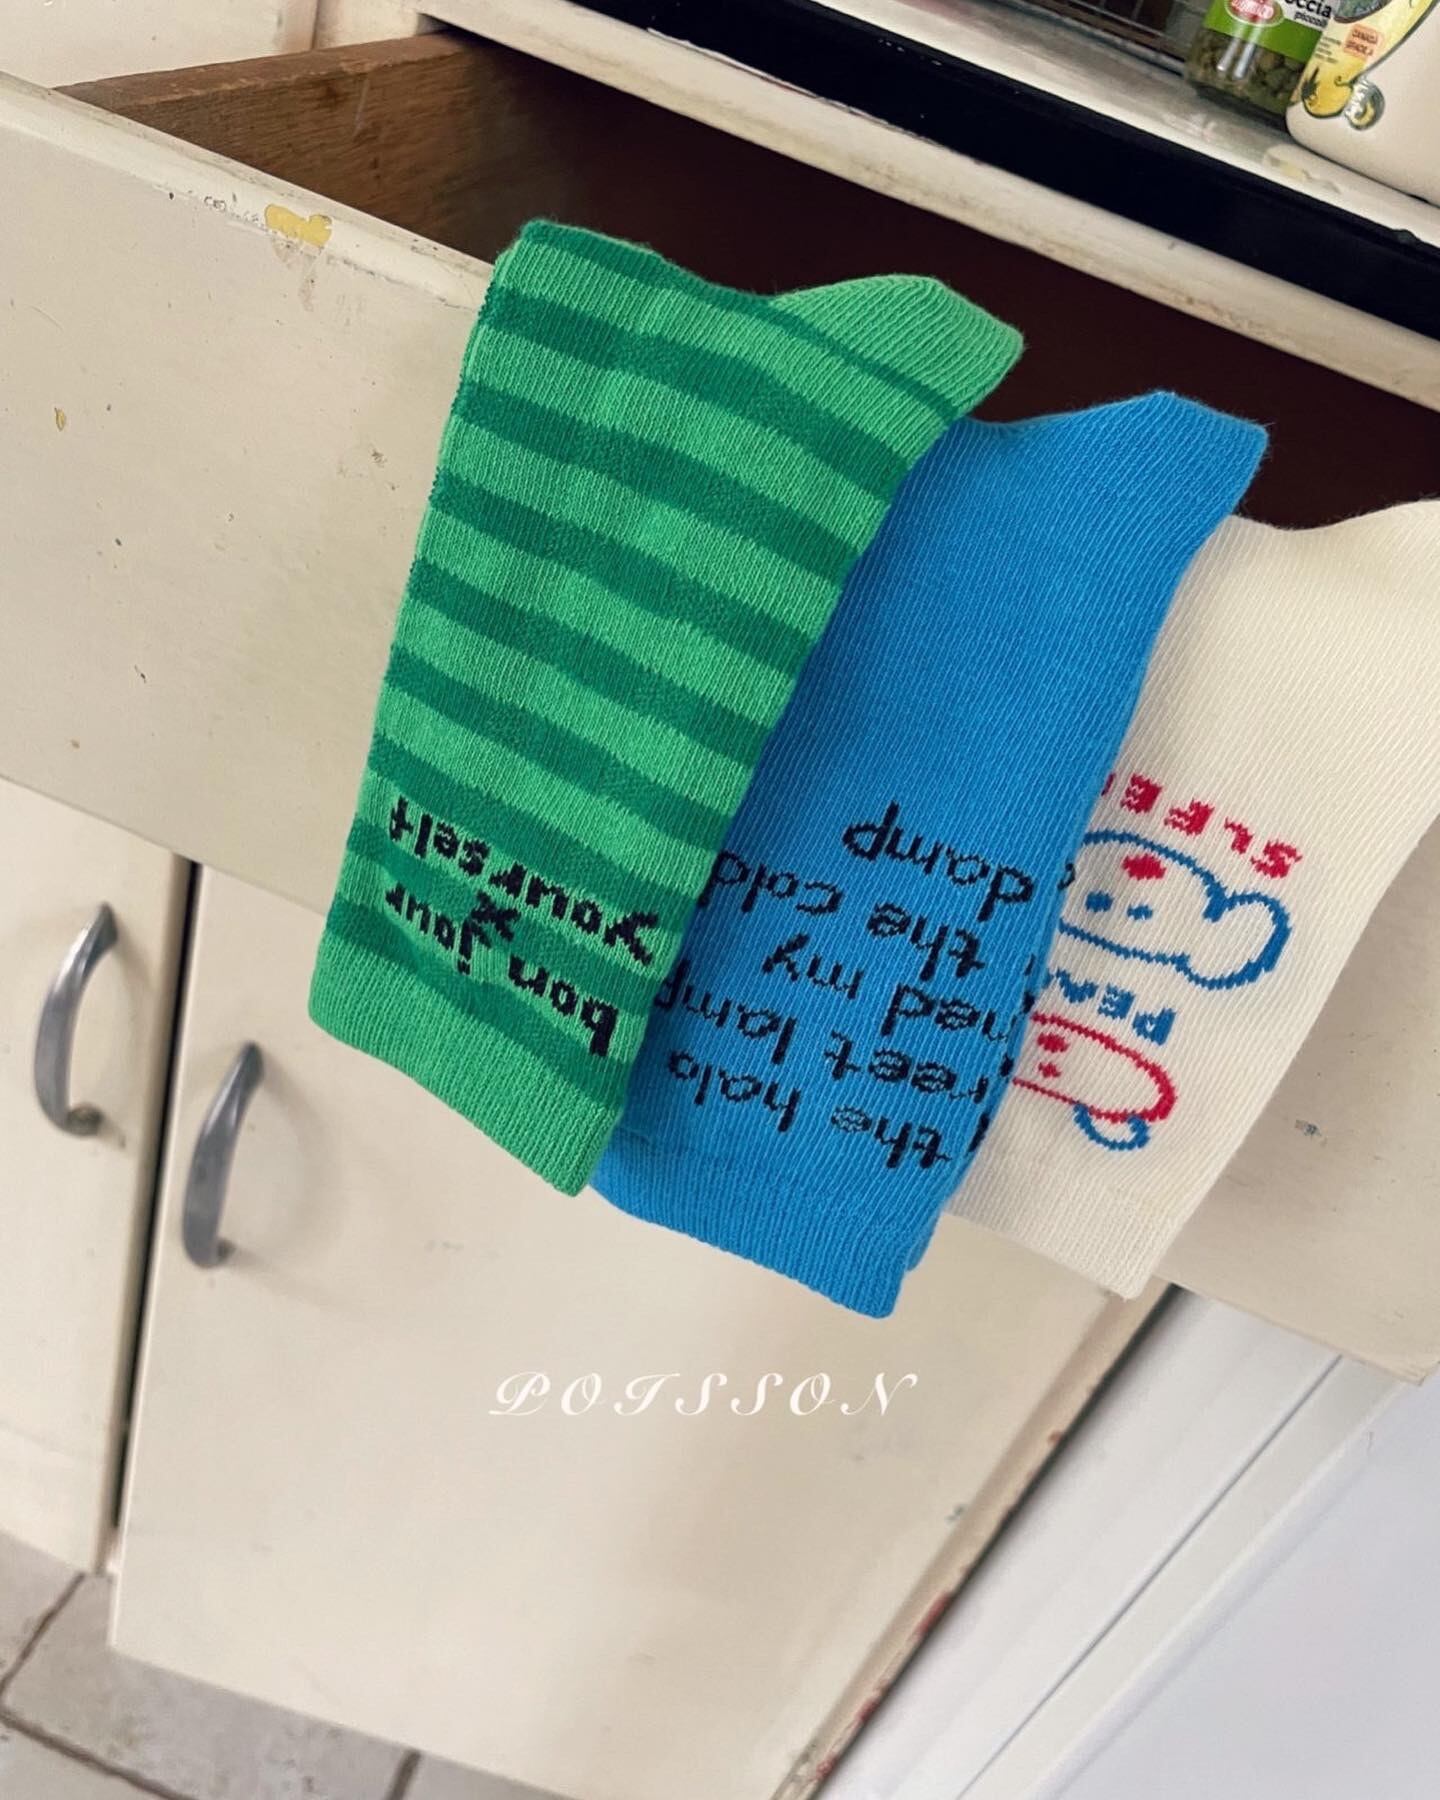 bon jour
x
yourself
the halo
reet lamp
ned my
the cold
damp
PEA
SLFE
POISSON